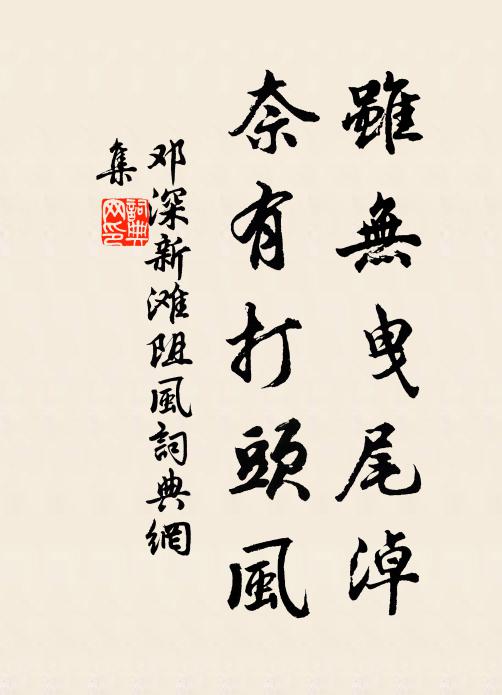 雖無曳尾淖
奈有打頭風
邓深新滩阻風詞典網
集
詞典
网印